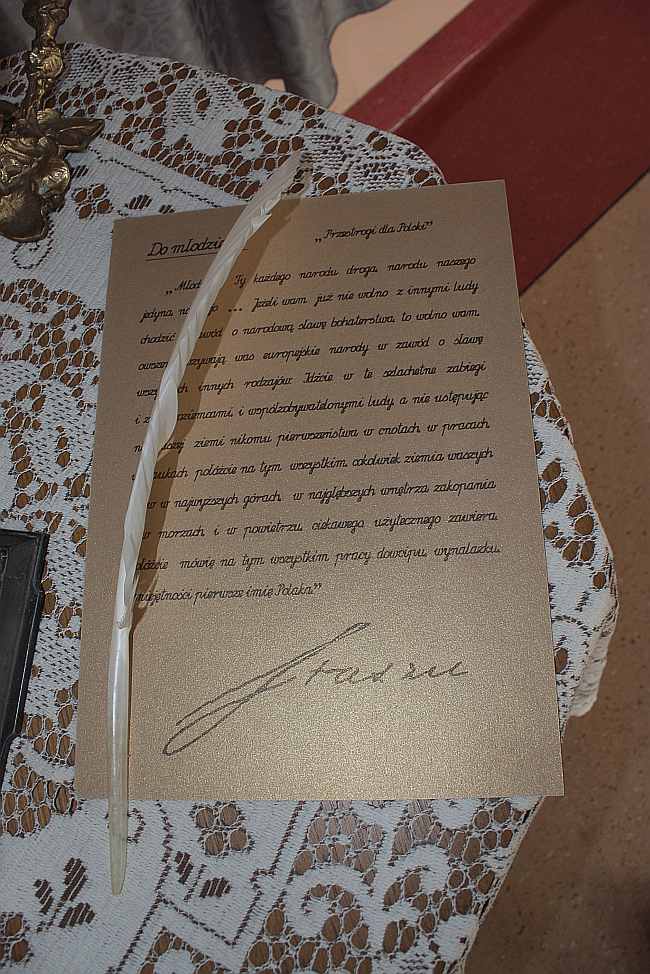 Do młodzie „Przestrogi dla Polski”
„Młod Ty każdego narodu droga, narodu naszego
jedyna, na o ... Jeżeli wam już nie wolno z innymi ludy
chodzić wód o narodową sławę bohaterstwa, to wolno wam,
owszem zywają was europejskie narody w zawód o sławę
wszys ch innych rodzajów. Idźcie w te szlachetne zabiegi
i z ziemcami i współzobywatelonymi ludy, a nie ustępując
na szej ziemi nikomu pierwszeństwa w cnotach, w pracach,
naukach połóżcie na tym wszystkim, cokolwiek ziemia waszych
w najwyższych górach, w najgłębszych wnętrza zakopania
w morzach, i w powietrzu, ciekawego, użytecznego zawiera,
łóżcie mówię na tym wszystkim pracy dowcipu, wynalazku,
miejętności pierwsze imię Polaka”